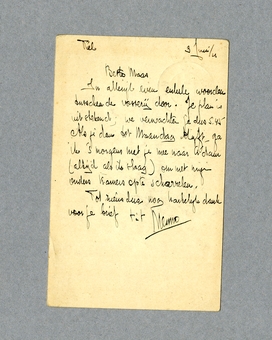 Tiel 3 Juni/
Beste Maas
In allerijl even enkele woorden
tusschen de voorrij door. Je plan is
uitstekend; we verwachten je dus 5.45
Als je dan tot Maandag blijft, ga
ik 's morgens met je mee naar A'dam
(altijd als ik slaag) om met mijn
ouders kamers op te scharrelen.
Tot ziens dus, nog hartelijk dank
voor je brief tot
Menno